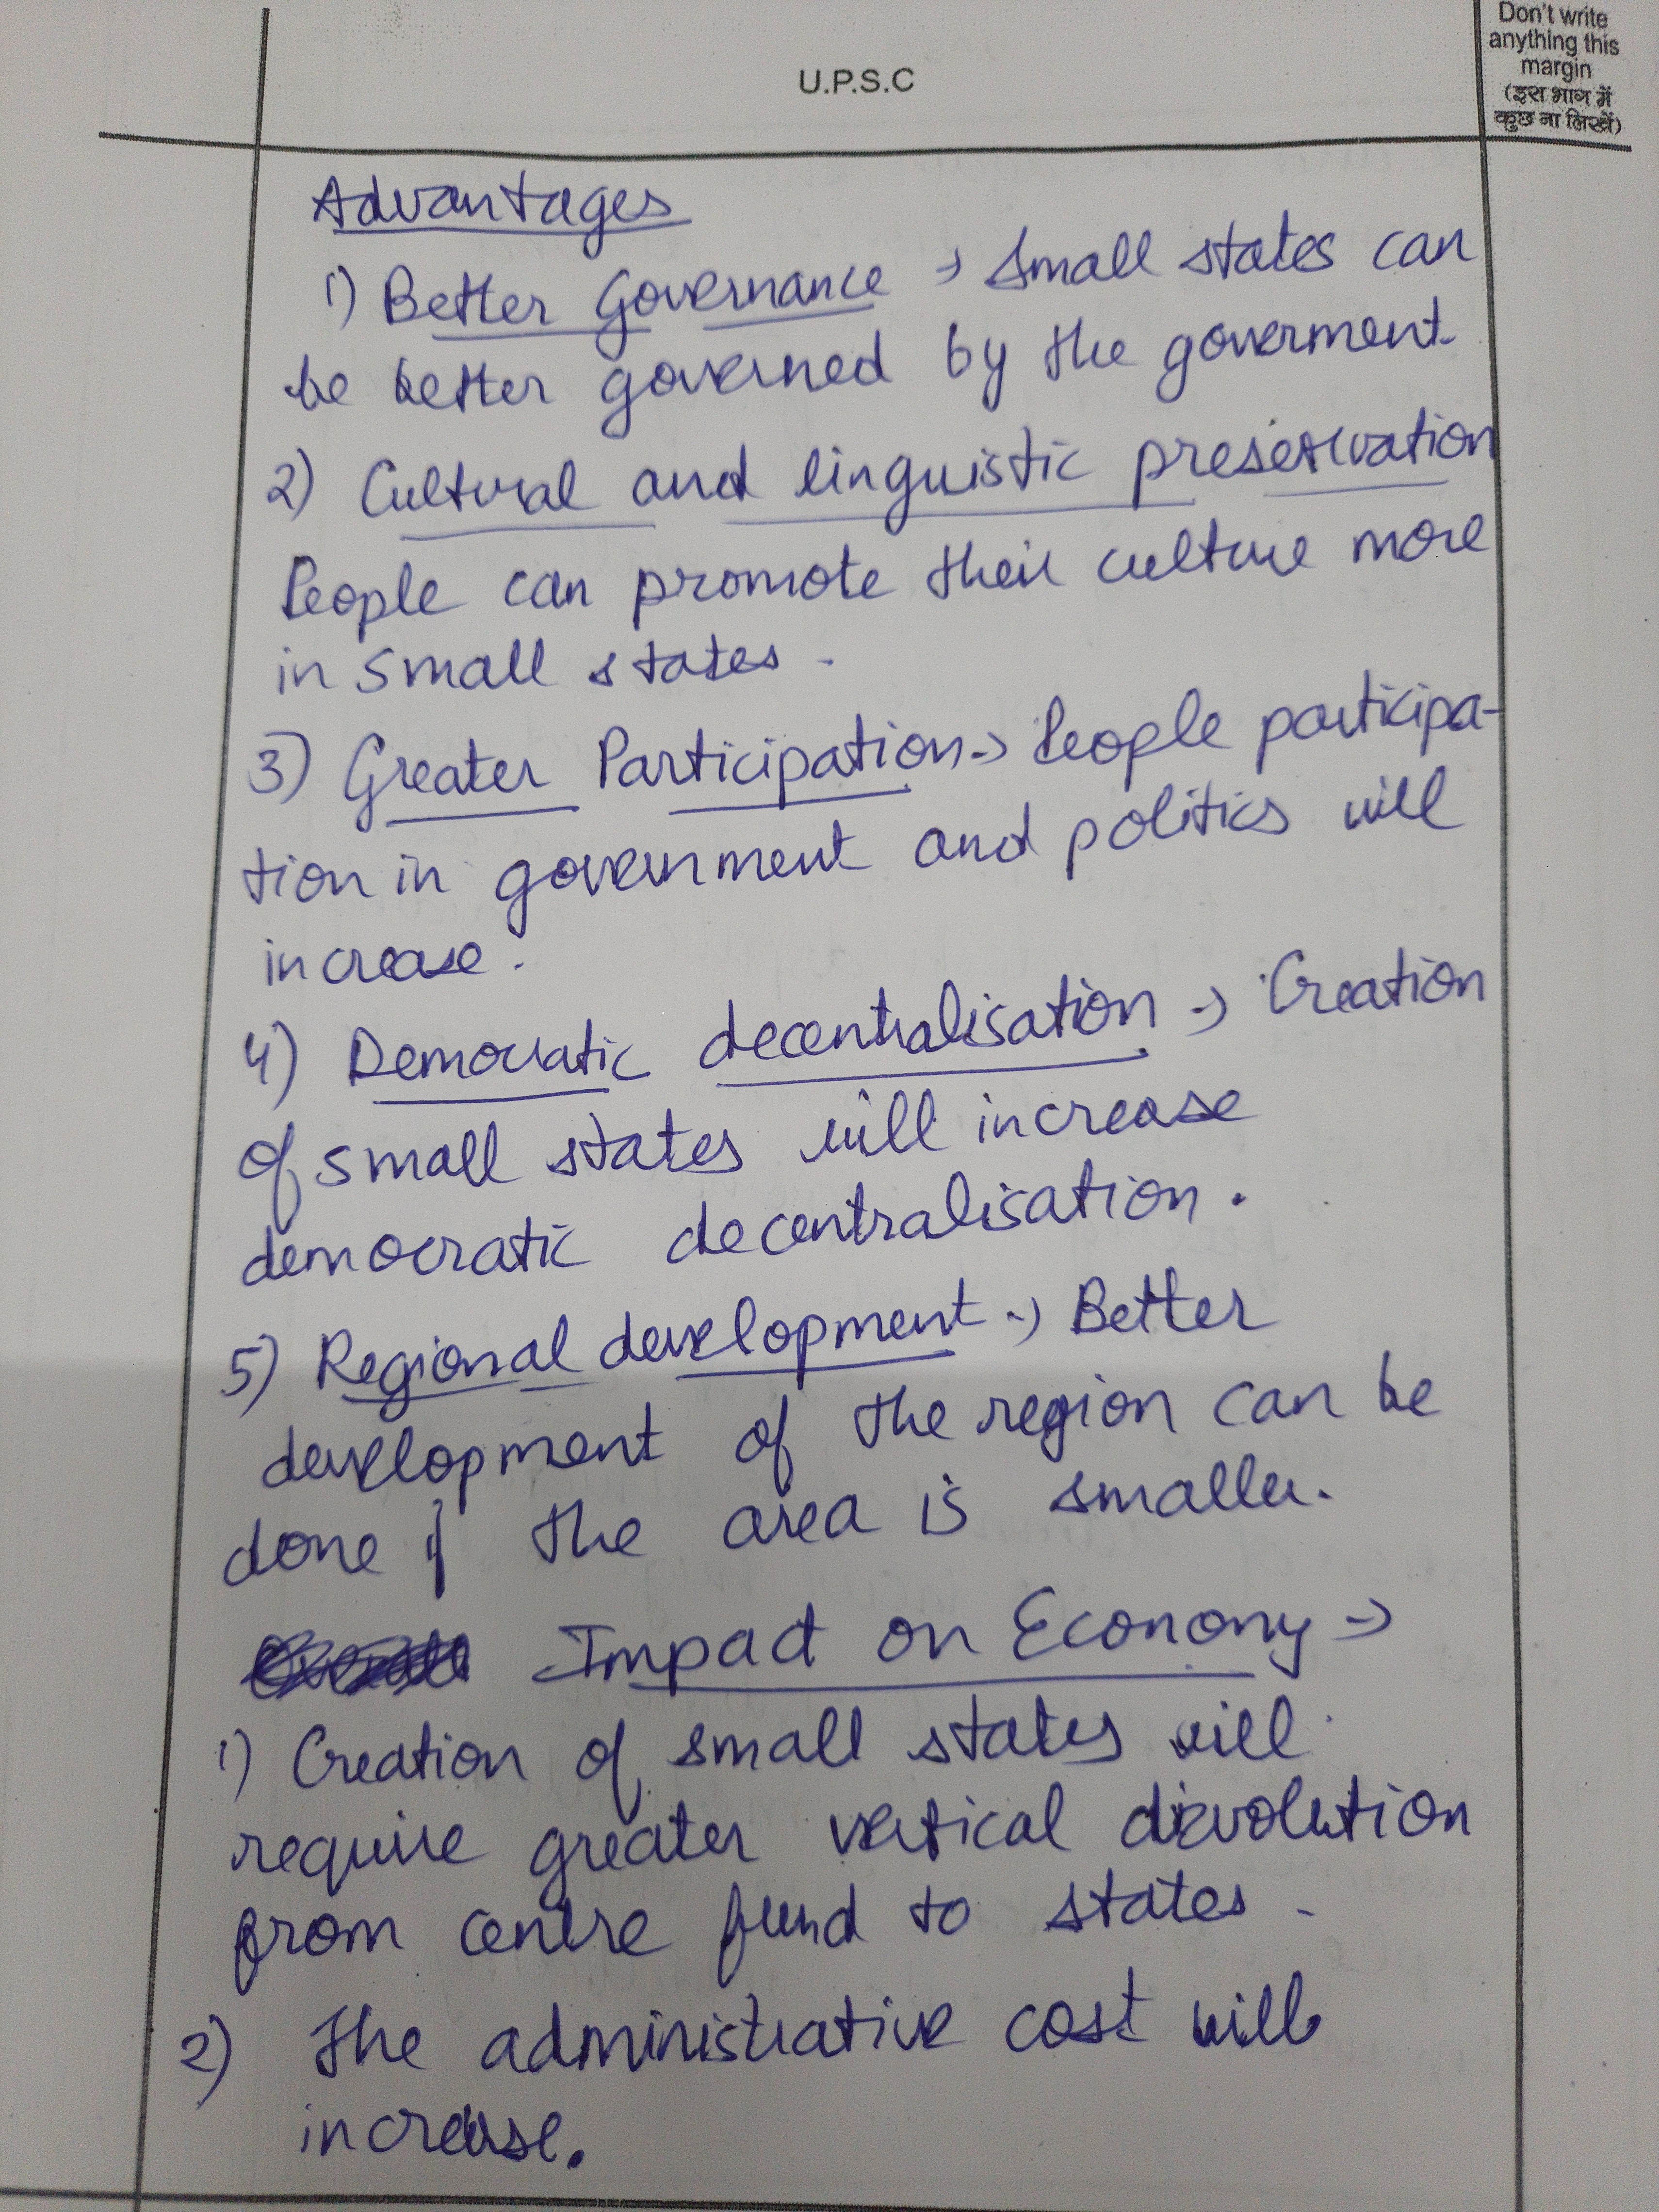 U.P.S.C
Don't write
anything this
margin
(इस भाग में
कुछ ना लिखें)
Advantages
1) Better Governance → Small states can
be better governed by the goverment
2) Cultural and linguistic preservation
People can promote their culture more
in small states.
3) Greater Participation → People participa-
tion in government and politics will
increase.
4) Democratic decentralisation → Creation
of small states will increase
democratic decentralisation.
5) Regional development → Better
development of the region can be
done if the area is smaller.
Impact on Economy →
1) Creation of small states will
require greater vertical devolution
from centre fund to states.
2) The administrative cost will
increase.